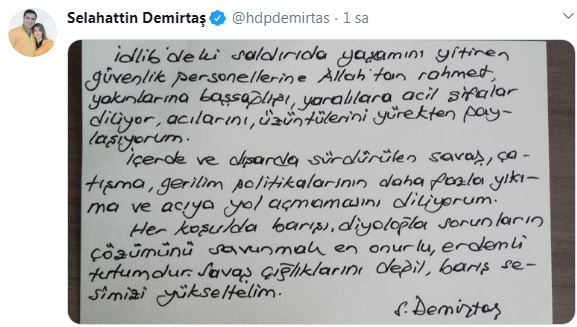 Selahattin Demirtaş @hdpdemirtas · 1 sa
İdlib'deki saldırıda yaşamını yitiren
güvenlik personellerine Allah'tan rahmet,
yakınlarına başsağlığı, yaralılara acil şifalar
diliyor, acılarını, üzüntülerini yürekten pay-
laşıyorum.
İçerde ve dışarda sürdürülen savaş, ça-
tışma, gerilim politikalarının daha fazla yıkı-
ma ve acıya yol açmamasını diliyorum.
Her koşulda barışı, diyalogla sorunların
çözümünü savunmak en onurlu, erdemli
tutumdur. Savaş çığlıklarını değil, barış se-
simizi yükseltelim.
S. Demirtaş